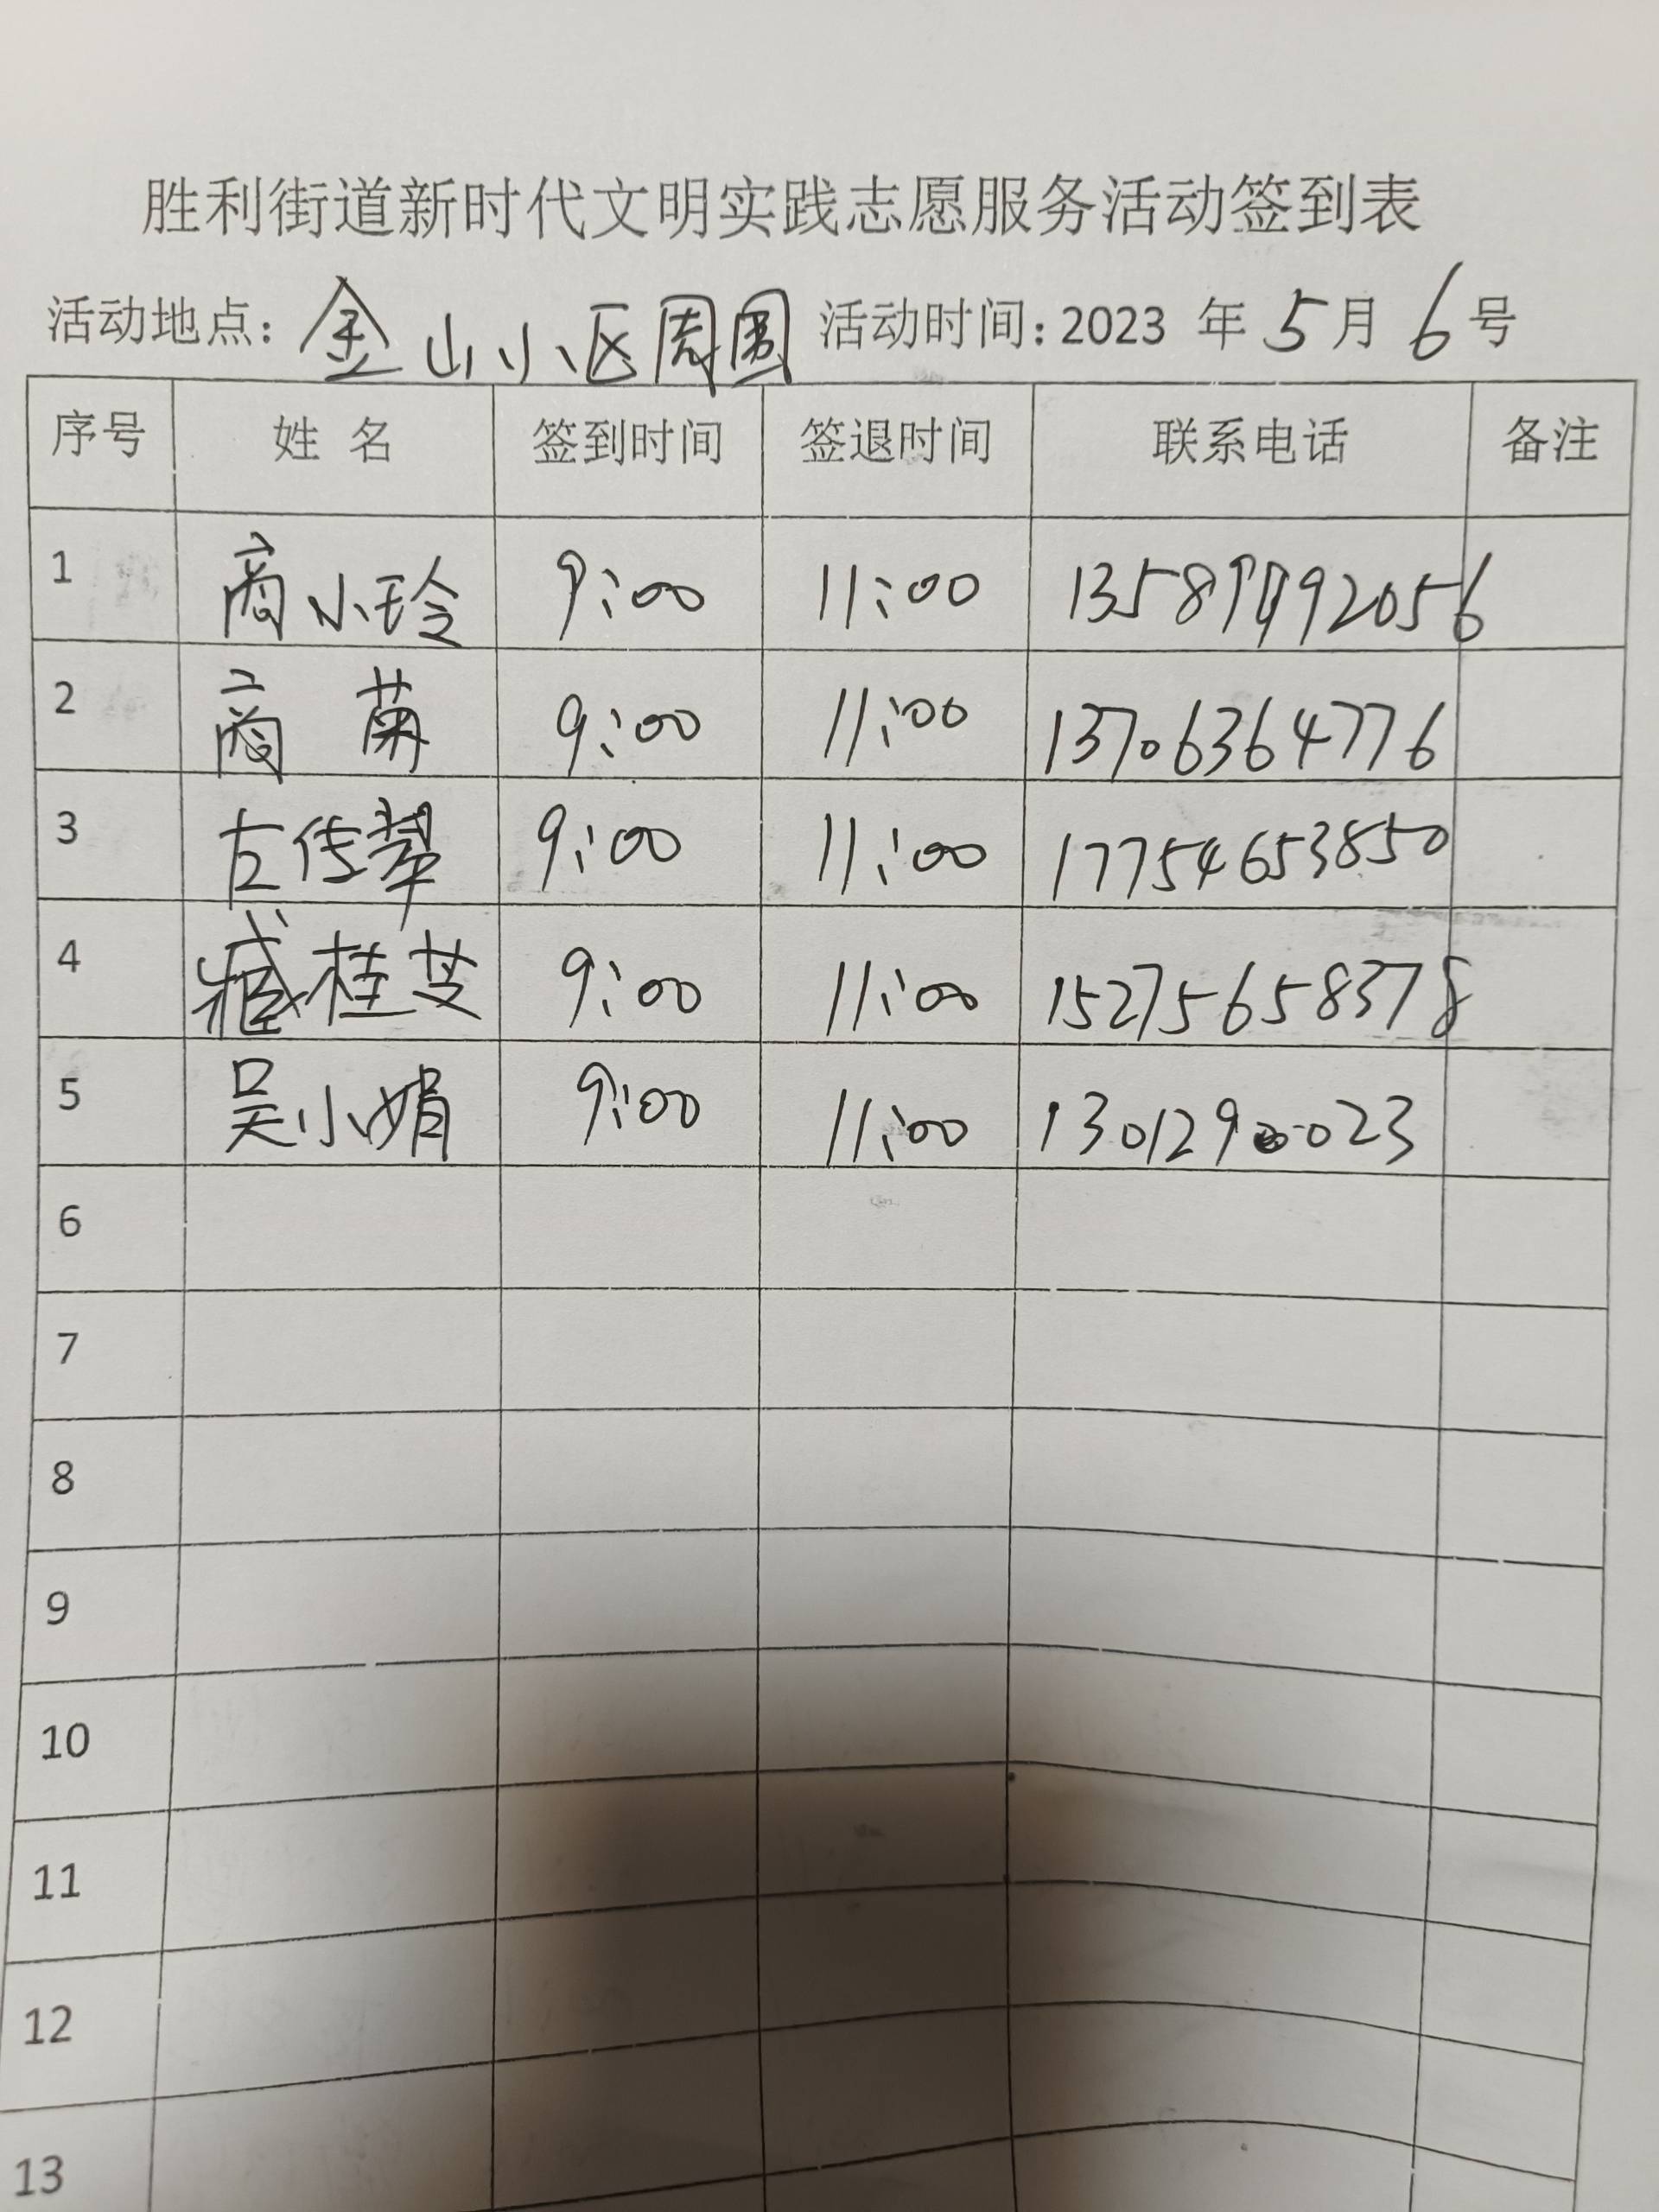 胜利街道新时代文明实践志愿服务活动签到表
活动地点: 金山小区周围 活动时间: 2023 年 5 月 6 号
序号 姓 名 签到时间 签退时间 联系电话 备注
1 商小玲 9:00 11:00 13589992056
2 商 菊 9:00 11:00 13706364776
3 左传翠 9:00 11:00 17754653850
4 臧桂芝 9:00 11:00 15275658378
5 吴小娟 9:00 11:00 13012900023
6
7
8
9
10
11
12
13